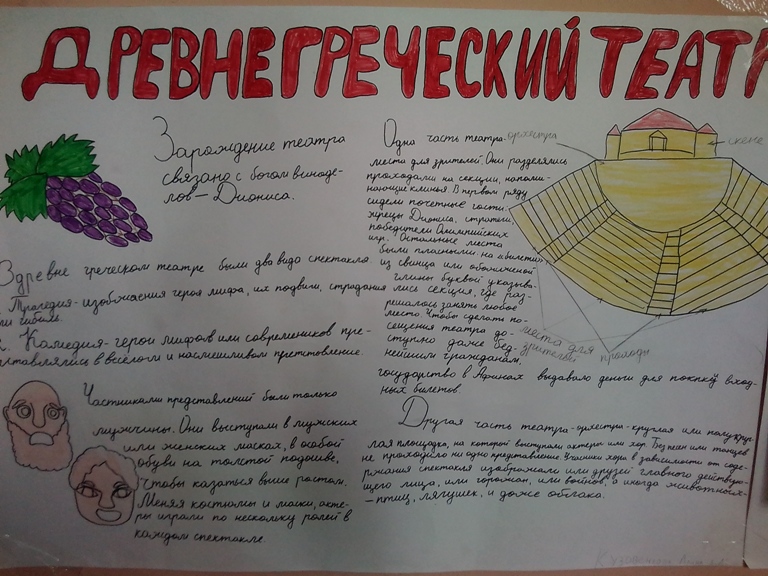 ДРЕВНЕГРЕЧЕСКИЙ ТЕАТР
Зарождение театра
связано с богом виноде-
лов — Диониса.
Здревне греческом театре были два вида спектакля.
1. Трагедия - изображения героя мифа, их подвиги, страдания
или гибель.
2. Камедия - герои мифов или современников пре-
дставлялись в весёлом и насмешливом
Частниками представлений были только
мужчины. Они выступали в мужских
или женских масках, в особой
обуви на толстой подошве,
чтобы казаться выше ростом.
Меняя костюмы и маски, акте-
ры играли по нескольку ролей в
каждом спектакле.
Одна часть театра -
места для зрителей. Они разделялись
проходами на секции, напоми-
нающие клинья. В первом ряду
сидели почетные гости:
жрецы Диониса, стратеги,
победители Олимпийских
игр. Остальные места
были платными: на «билетах»
из свинца или обожженной
глины буквой указыва-
лись секция, где раз-
решалось занять любое
место. Чтобы сделать по-
сещения театра до-
ступно даже бед-
нейшим гражданам,
государство в Афинах выдавало деньги для покпку вход-
ных билетов.
орхестра
скене
места для
зрителей
проходы
Другая часть театра - орхестра - круглая или полукруг-
лая площадка, на которой выступали актеры или хор. Без песен или танцев
не проходило ни одно представление. Учасники хора в зависимости от соде-
ржания спектакля изображали или друзей главного действую-
щего лица, или горожан, или воинов, а иногда животных-
- птиц, лягушек, и даже облака.